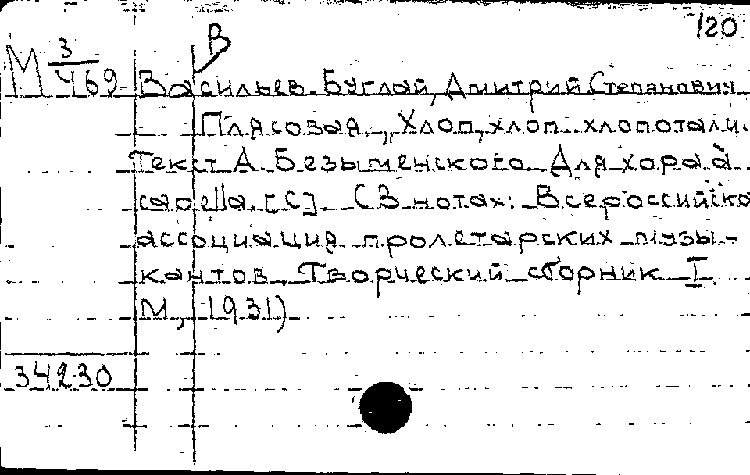 120
В
М 3/469
Васильев-Буглай, Дмитрий Степанович
Плясовая. „Хлоп, хлоп хлопотали.
Текст А. Безыменского. Для хора а
capella. [С]. (В нотах: Всероссийско
ассоциация пролетарских музы-
кантов. Творческий сборник I.
М., 1931)
34230